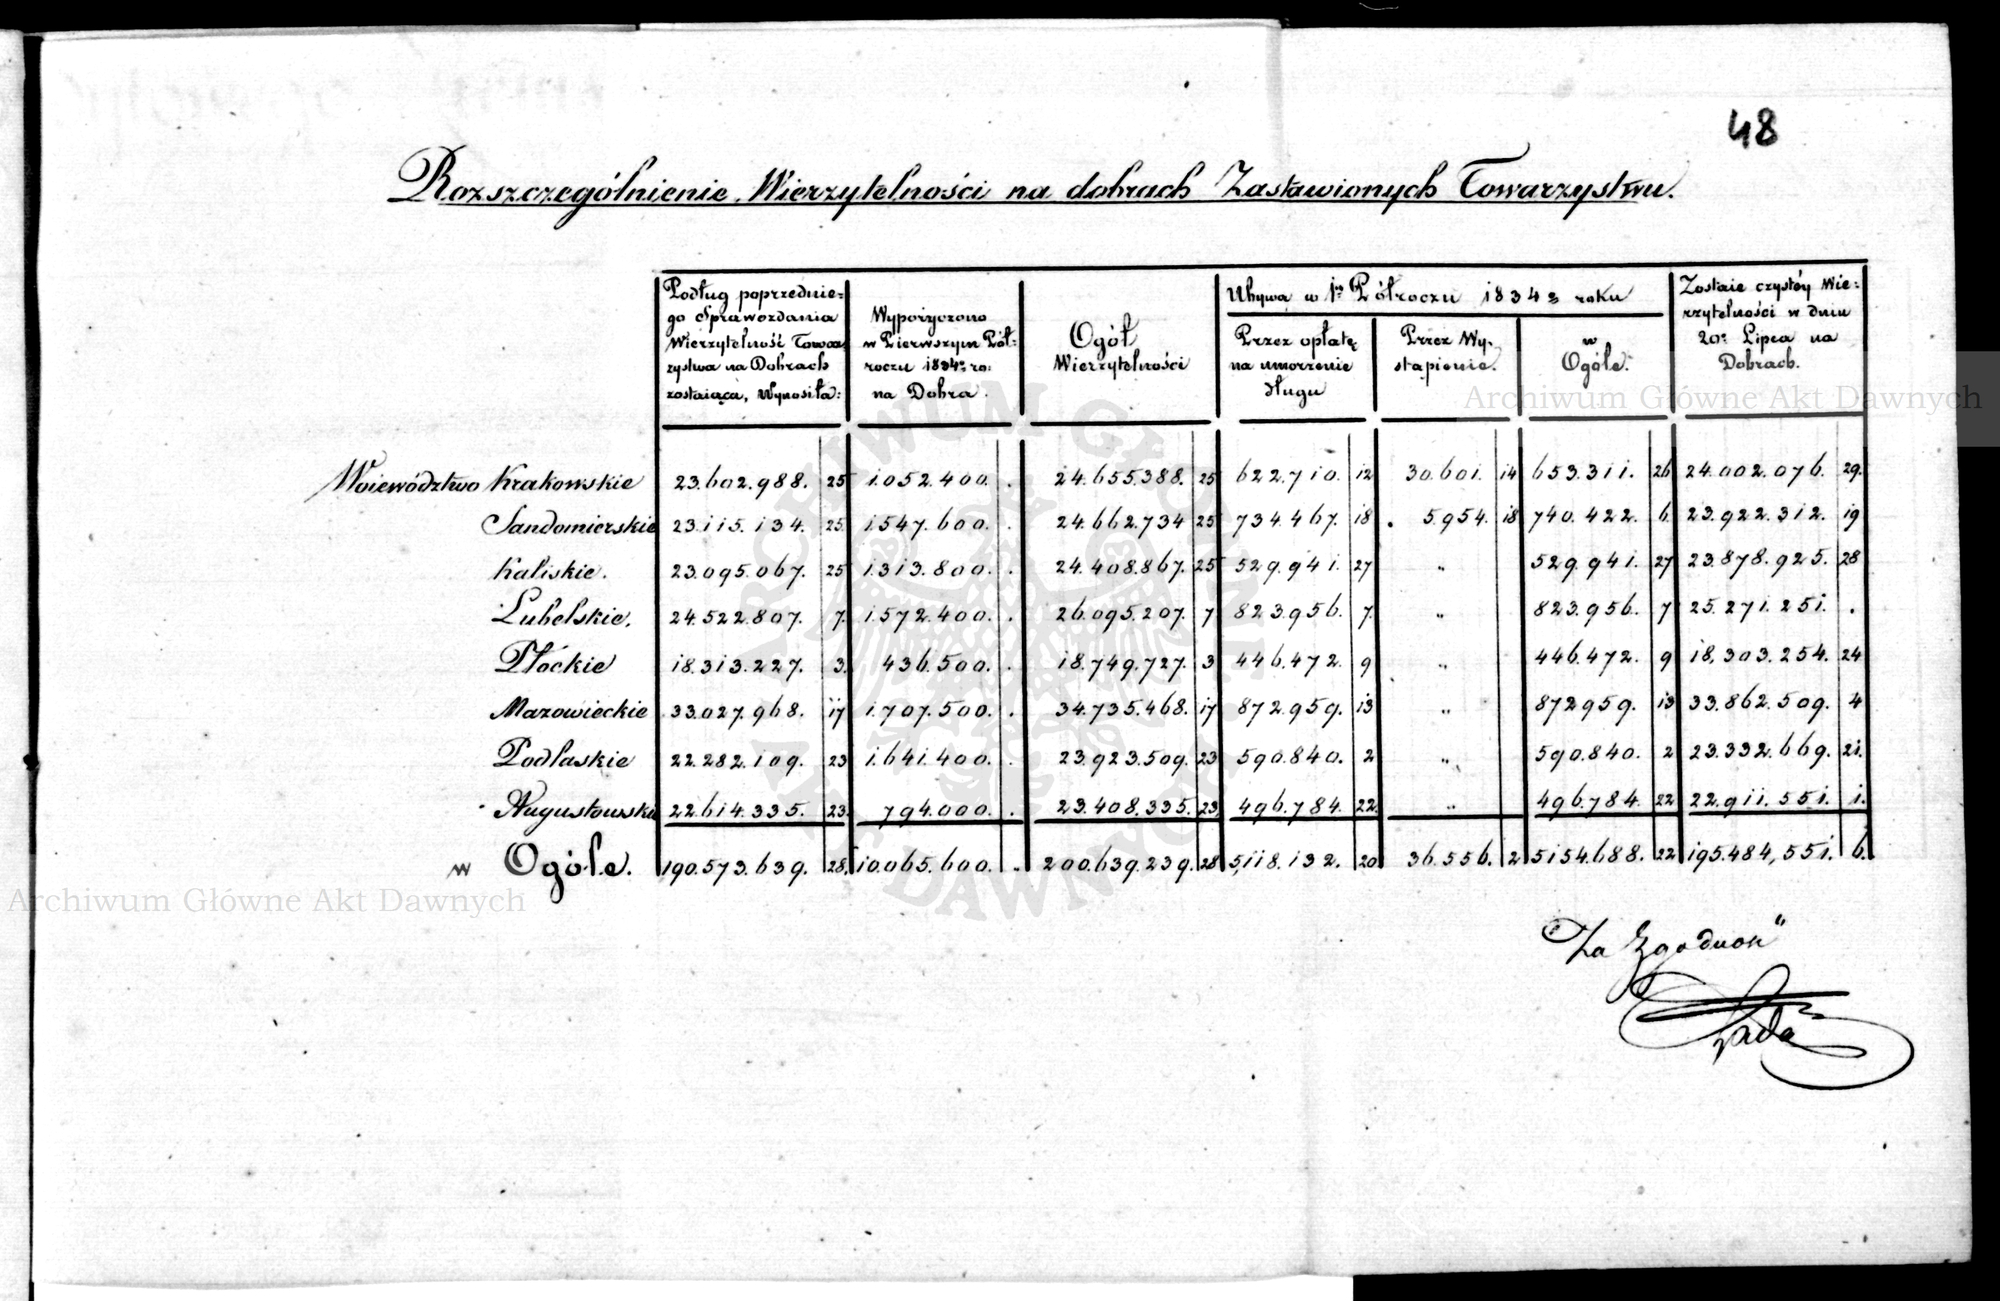 48
Rozszczególnienie Wierzytelności na dobrach Zastawionych Towarzystwu.
Podług poprzednie=
go Sprawozdania
Wierzytelność Towa
zystwa na Dobrach
zostaiąca, Wynosiła:
Wypożyczono
w Pierwszym Pół=
roczu 1834º ro:
na Dobra.
Ogół
Wierzytelności
Ubywa w 1m Półroczu 1834º roku
Przez opłatę
na umorzenie
długu
Przez Wy=
stąpienie.
w
Ogóle.
Zostaie czystéy Wie=
rzytelności w dniu
20º Lipca na
Dobrach.
Województwo Krakowskie 23.602.988. 25 1.052.400. . 24.655.388. 25 622.710. 12 30.601. 14 653.311. 26 24.002.076. 29.
Sandomierskie 23.115.134. 25. 1.547.600. . 24.662.734 25 734.467. 18 . 5.954. 18 740.422. 6. 23.922.312. 19
Kaliskie. 23.095.067. 25 1.313.800. . 24.408.867. 25 529.941. 27 " 529.941. 27 23.878.925. 28
Lubelskie, 24.522.807. 7. 1.572.400. . 26.095.207. 7 823.956. 7. " 823.956. 7 25.271.251. .
Płóckie 18.313.227. 3. 436.500. . 18.749.727. 3 446.472. 9 " 446.472. 9 18.303.254. 24
Mazowieckie 33.027.968. 17 1.707.500. . 34.735.468. 17 872.959. 13 " 872959. 13 33.862.509. 4
Podlaskie 22.282.109. 23 1.641.400. . 23.923.509. 23 590.840. 2 " 590.840. 2 23.332.669. 21.
Augustowskie 22.614.335. 23. 794.000. . 23.408.335. 23 496.784. 22. " 496.784. 22 22.911.551. 1.
w Ogóle. 190.573.639. 28. 10.065.600. .. 200.639.239. 28 5,118.132. 20 36.556. 2 5154.688. 22 195.484,551. 6.
Za Zgodność
Archiwum Główne Akt Dawnych
Archiwum Główne Akt Dawnych
ARCHIWUM GŁÓWNE AKT DAWNYCH